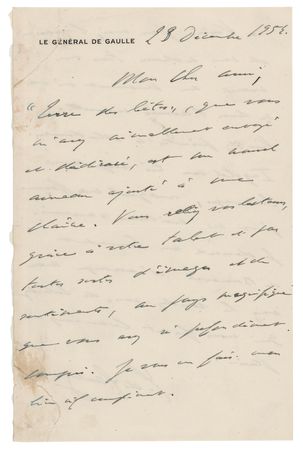 LE GÉNÉRAL DE GAULLE 23 Décembre 195
Mon cher ami,
"Terre des bêtes", que vous
m'avez aimablement envoyé
et dédicacé, est un nouvel
anneau ajouté à une
chaîne. Vous vos lecteurs,
grâce à votre talent et par
toutes sortes d'images et de
sentiments, au pays magnifique
que vous avez si profondément
compris. Je vous en fais mon
bien vif compliment.